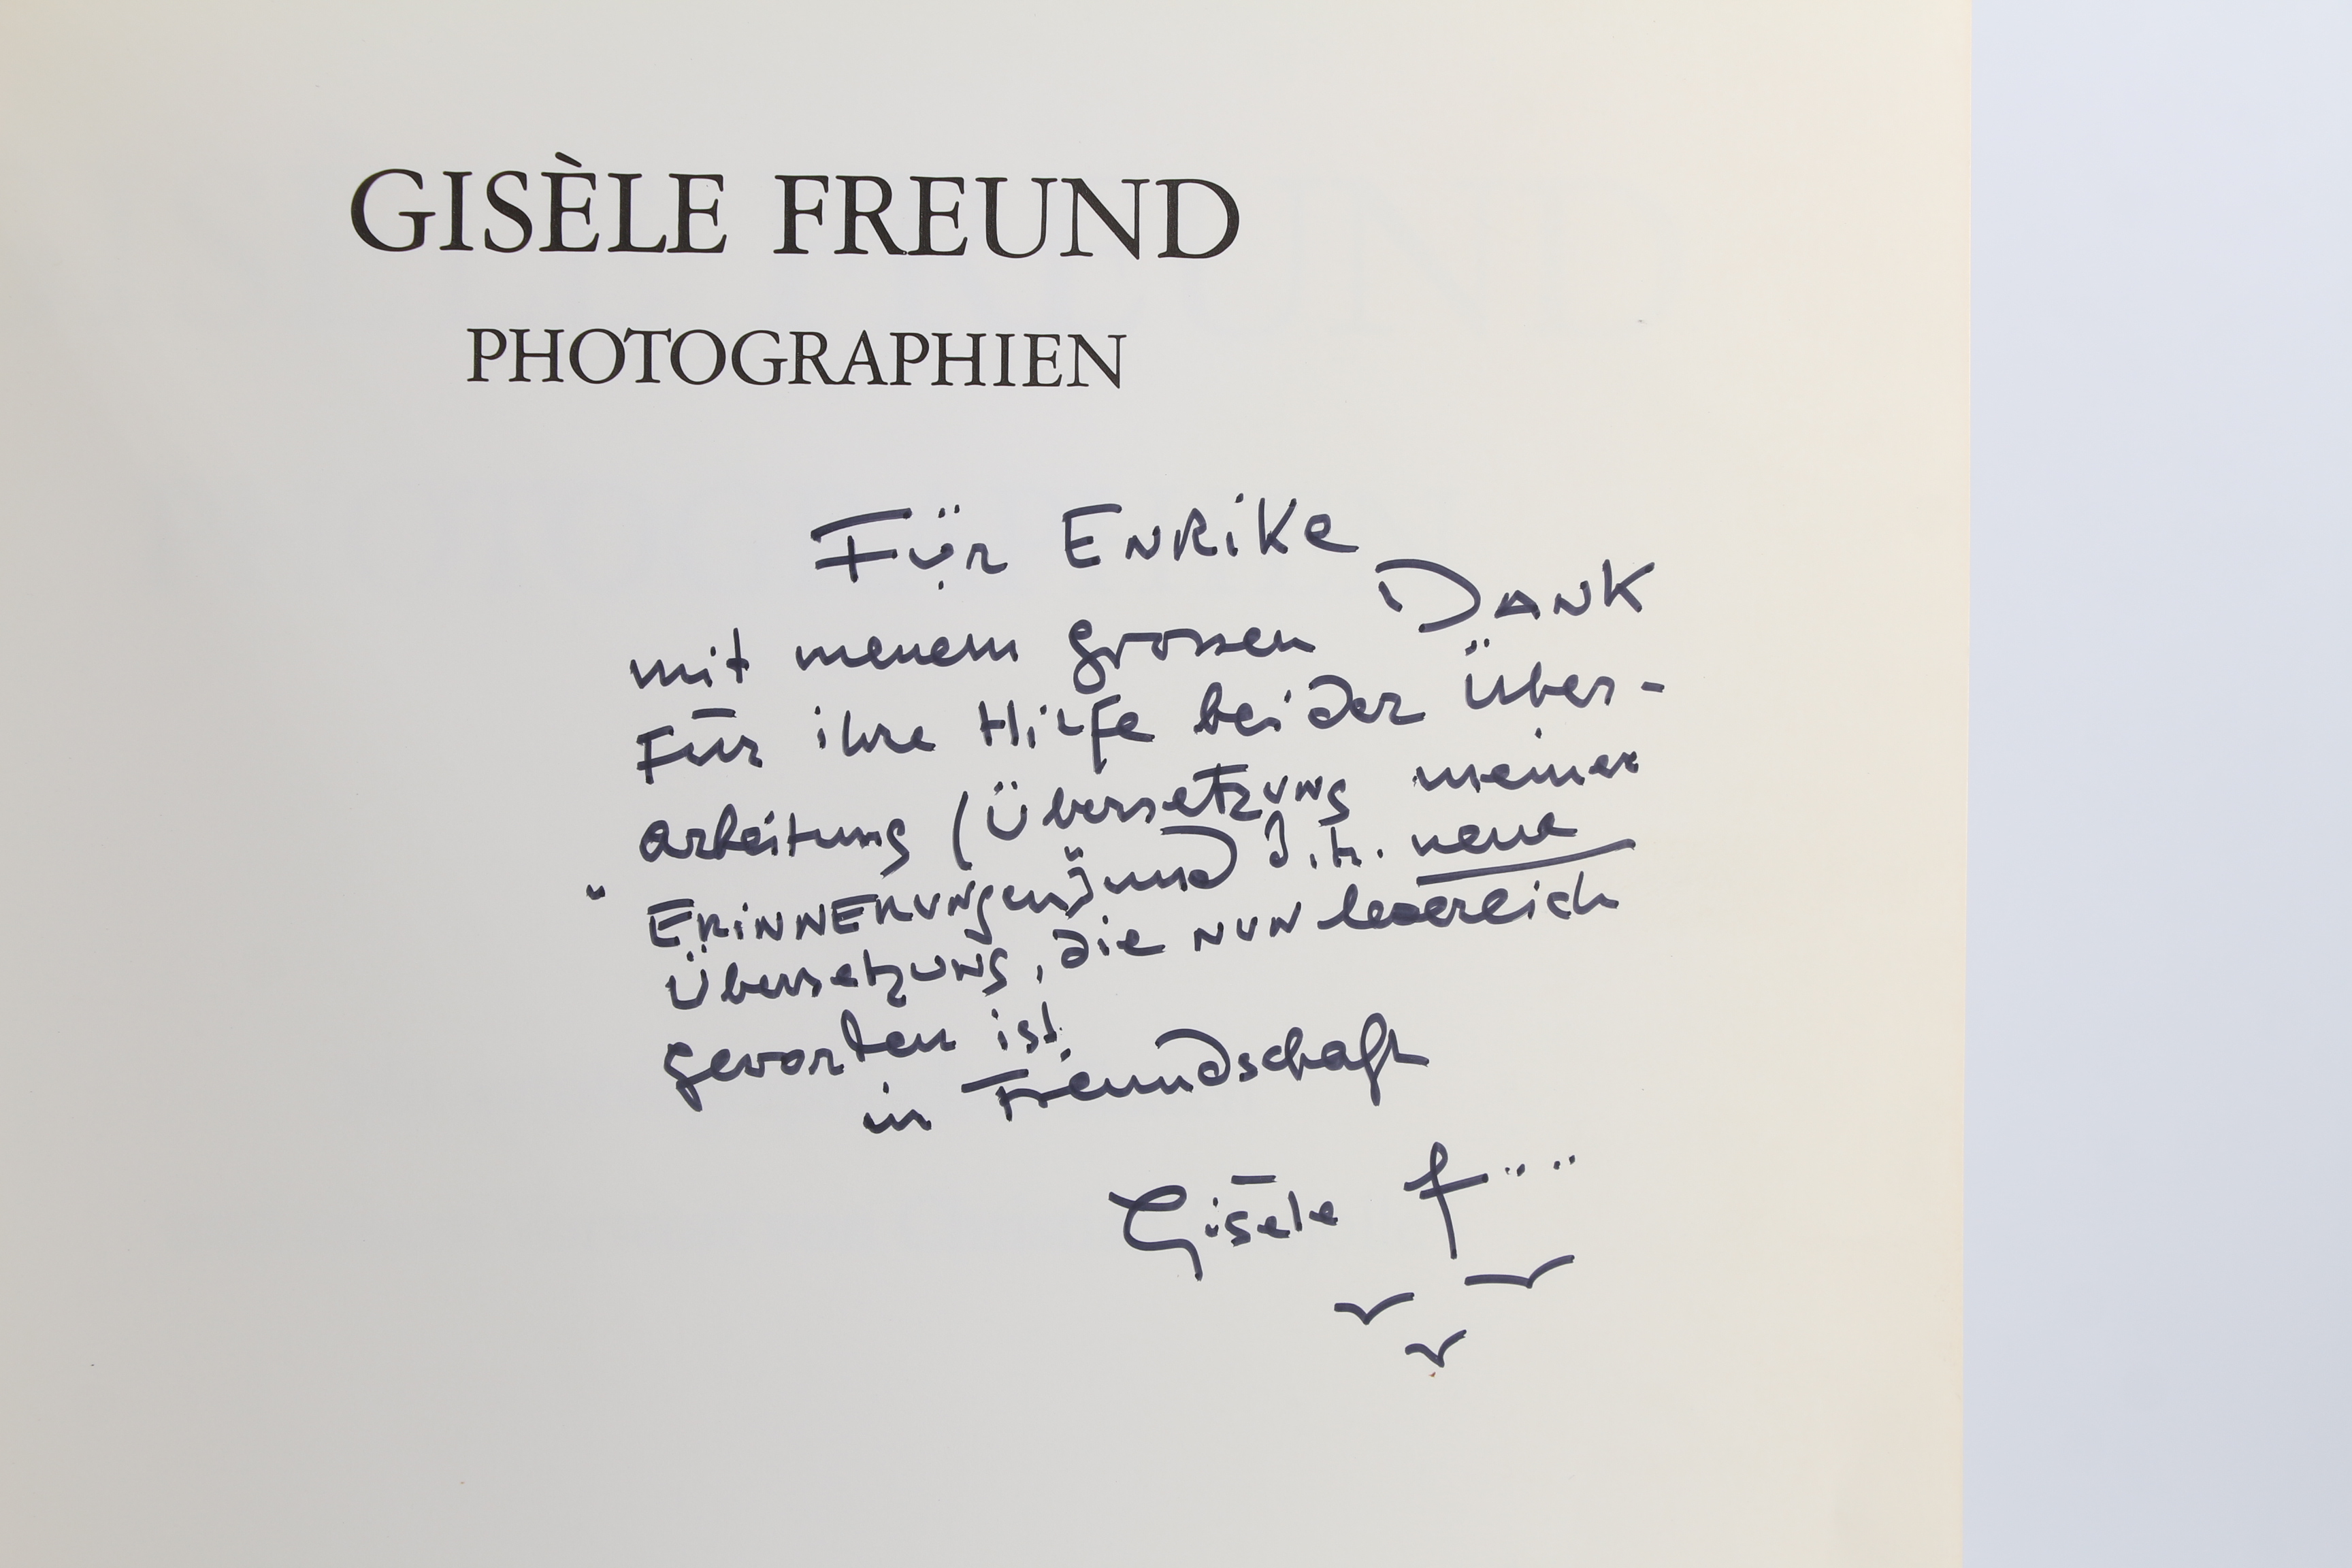 GISÈLE FREUND
PHOTOGRAPHIEN
Für ENRiKe
mit meinem grossen DANK
Für ihre Hilfe bei der über-
arbeitung (Übersetzung meiner
"ERiNNERUNgen") und d.h. neue
Übersetzung, die NUN
geworden ist.
in Freundschaft
Gisèle F....